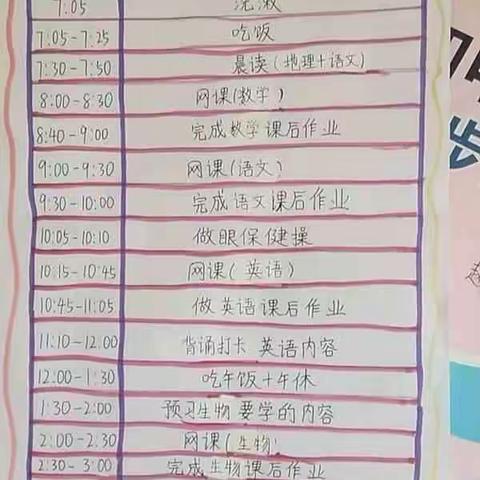 7:05 洗漱
7:05-7:25 吃饭
7:30-7:50 晨读(地理+语文)
8:00-8:30 网课(数学)
8:40-9:00 完成数学课后作业
9:00-9:30 网课(语文)
9:30-10:00 完成语文课后作业
10:05-10:10 做眼保健操
10:15-10:45 网课(英语)
10:45-11:05 做英语课后作业
11:10-12:00 背诵打卡 英语内容
12:00-1:30 吃午饭+午休
1:30-2:00 预习生物要学的内容
2:00-2:30 网课(生物
2:30-3:00 完成生物课后作业